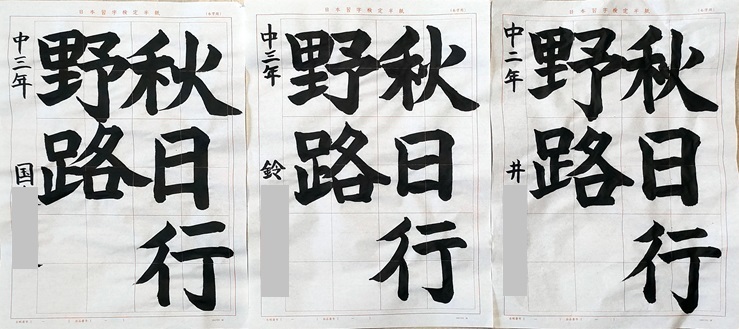 日本習字検定半紙
秋日行
野路
中三年
国
日本習字検定半紙
秋日行
野路
中三年
鈴
日本習字検定半紙
秋日行
野路
中二年
井